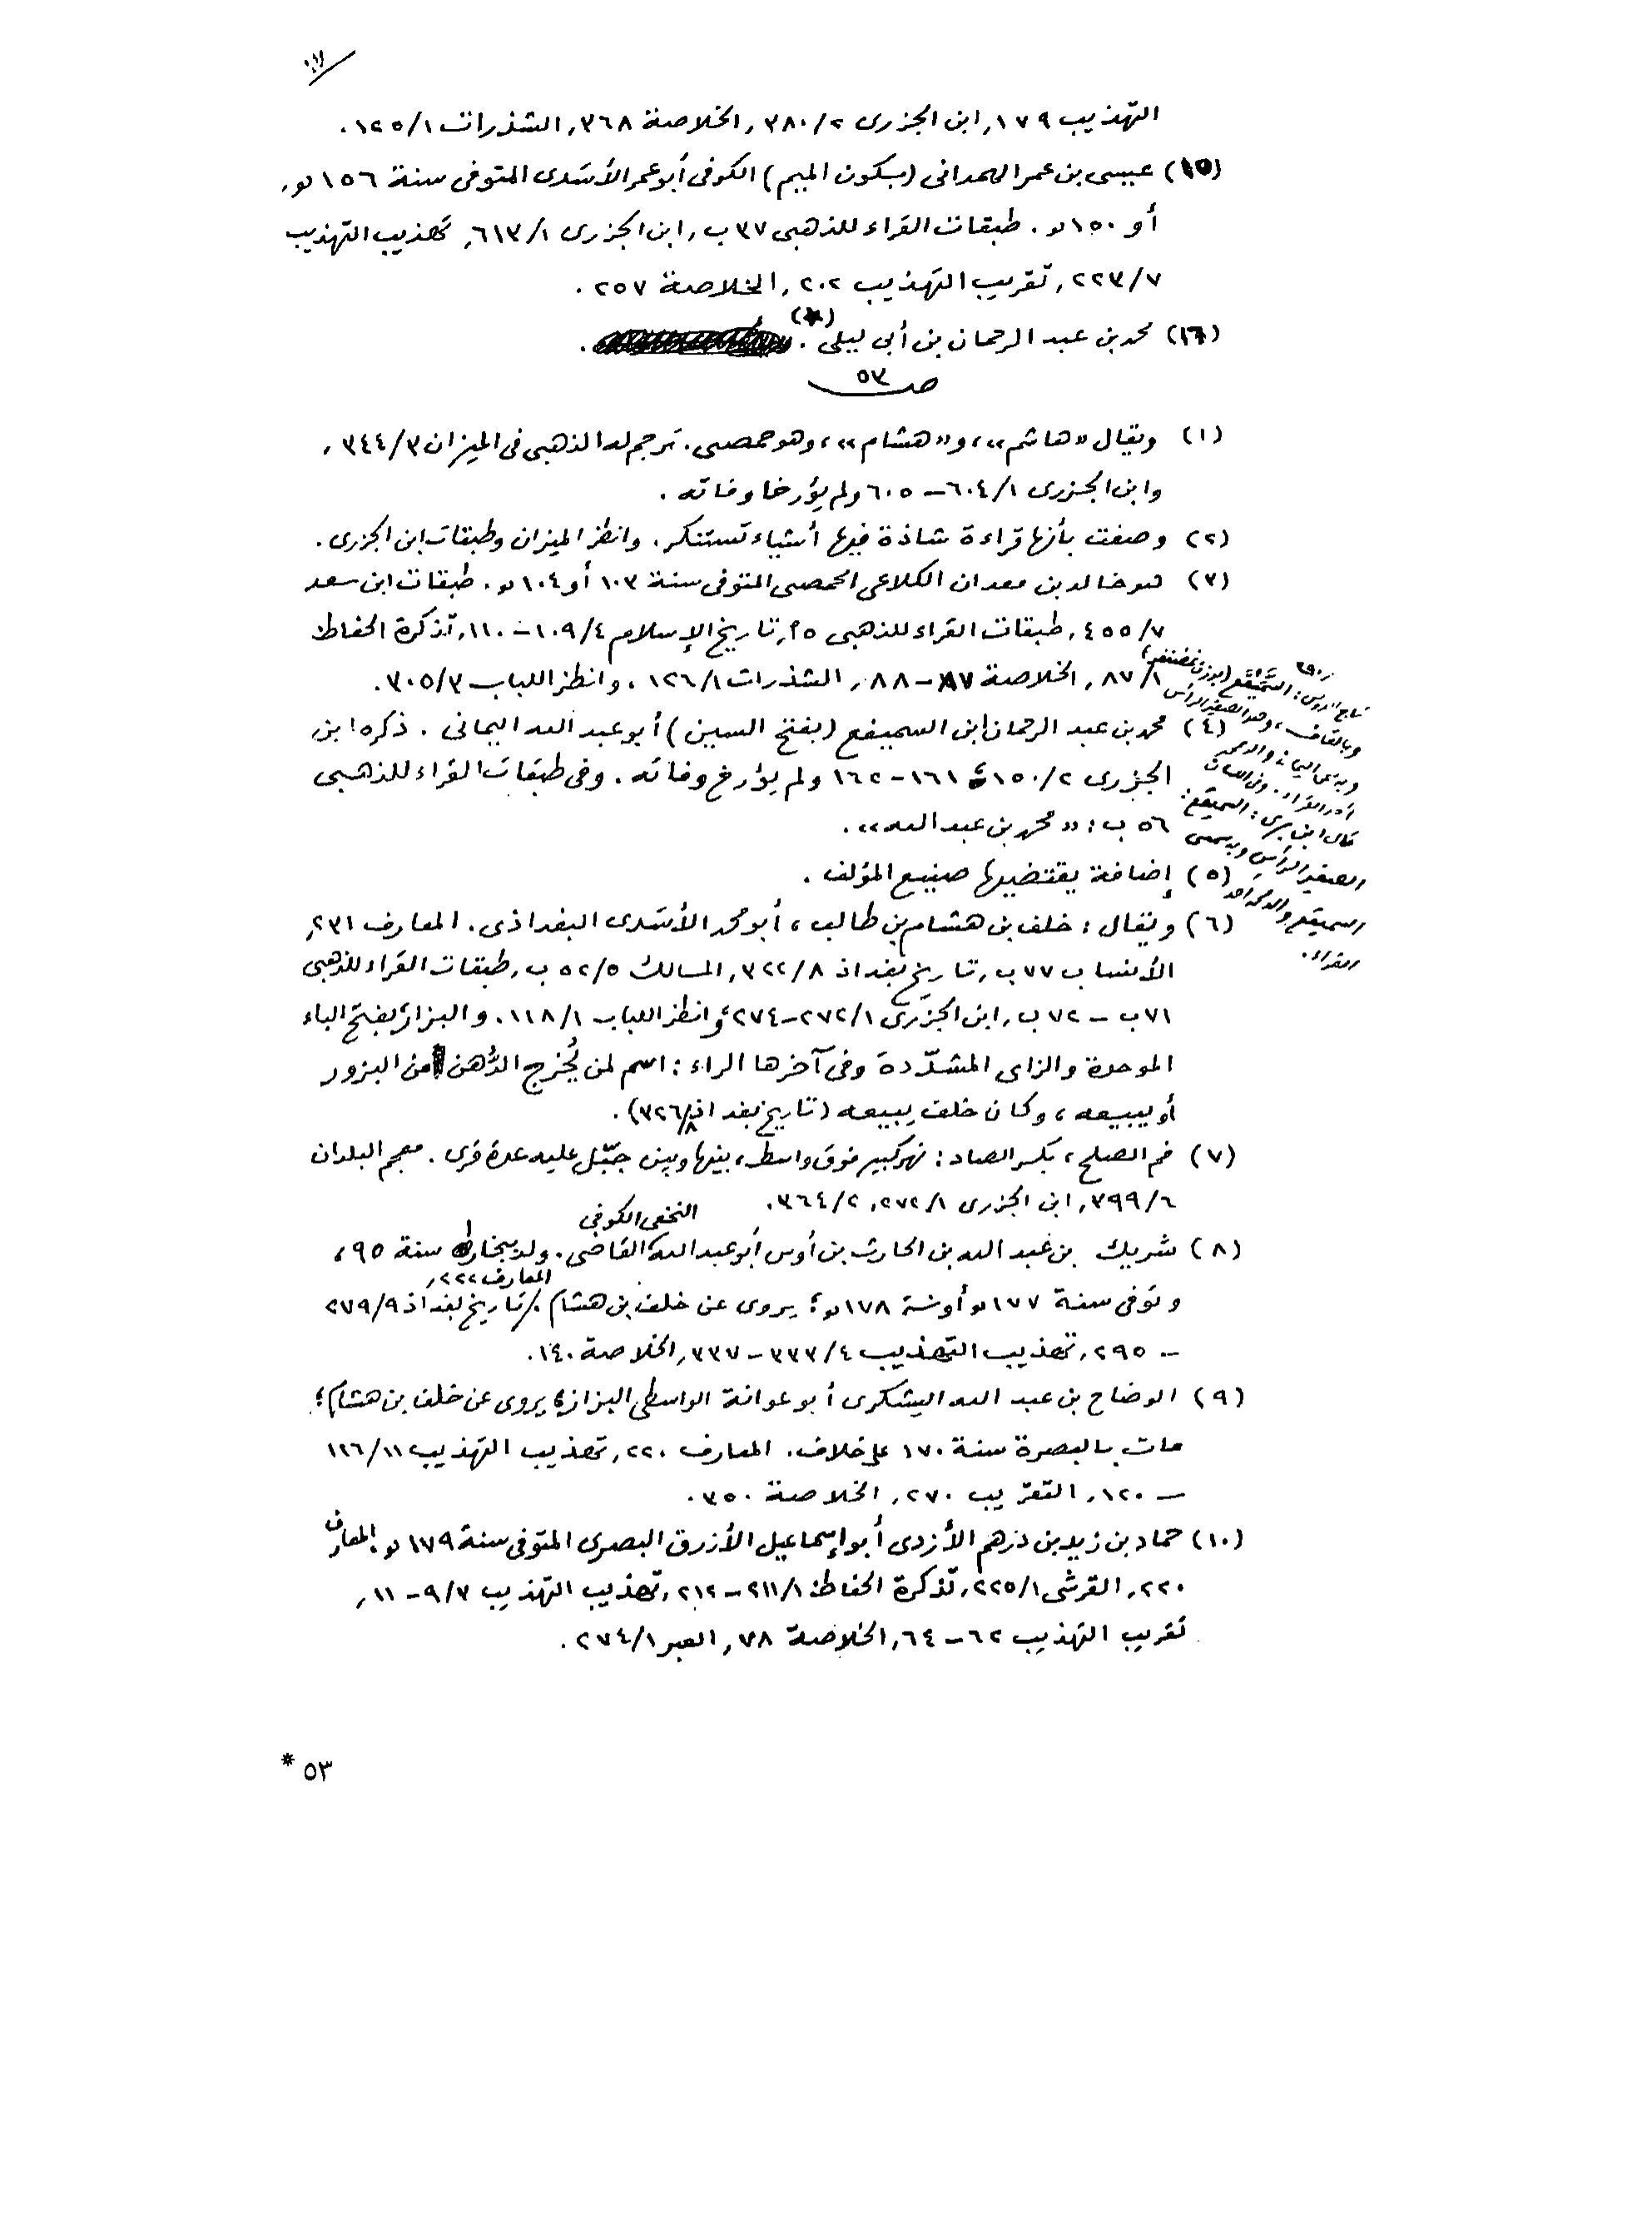 التهذيب ١٧٩, ابن الجزرى ٣٨٠/٢, الخلاصة ٣٦٨, الشذرات ١٢٥/١.
(١٥) عيسى بن عمر الهمدانى (بسكون الميم) الكوفى أبو عمر الأسَدى المتوفى سنة ١٥٦ هـ,
أو ١٥٠ هـ. طبقات القراء للذهبى ٣٧ ب, ابن الجزرى ٦١٣/١, تهذيب التهذيب
٢٢٣/٧, تقريب التهذيب ٢٠٢, الخلاصة ٢٥٧.
(١٦) محمد بن عبد الرحمان بن أبى ليلى (*).
صـ ٥٣
(١) ويقال «هاشم»، و«هشام»، وهو حمصى. ترجم له الذهبى فى الميزان ٣٤٤/٣,
وابن الجزرى ٦٠٤/١ – ٦٠٥ ولم يؤرخا وفاته.
(٢) وصفت بأنها قراءة شاذة فيها أشياء تستنكر. وانظر الميزان وطبقات ابن الجزرى.
(٣) هو خالد بن معدان الكلاعى الحمصى المتوفى سنة ١٠٣ أو ١٠٤ هـ. طبقات ابن سعد
٤٥٥/٧, طبقات القراء للذهبى ٢٥, تاريخ الإسلام ١٠٩/٤ – ١١٠, تذكرة الحفاظ
٨٧/١, الخلاصة ٨٧ – ٨٨, الشذرات ١٢٦/١, وانظر اللباب ٣٠٥/٣.
(٤) محمد بن عبد الرحمان ابن السميفع (بفتح السين) أبو عبد الله اليمانى. ذكره ابن
الجزرى ١٥٠/٢، ١٦١ – ١٦٢ ولم يؤرخ وفاته. وفى طبقات القراء للذهبى
٥٦ ب: «محمد بن عبد الله».
تاج العروس: السَّمَيْقَع (بوزن غضنفر)
وبالقاف، وهو الصغير الرأس
قال ابن برى: السميقع:
الصغير الرأس وبه سمى
السميقع والد محمد أحد
القراء.
(٥) إضافة يقتضيها صنيع المؤلف.
(٦) ويقال: خلف بن هشام بن طالب، أبو محمد الأسَدى البغداذى. المعارف ٢٣١,
الأنساب ٧٧ ب, تاريخ بغداذ ٣٢٢/٨, المسالك ٥٢/٥ ب, طبقات القراء للذهبى
٧١ ب – ٧٢ ب, ابن الجزرى ٢٧٢/١ – ٢٧٤، وانظر اللباب ١١٨/١. والبزار بفتح الباء
الموحدة والزاى المشدّدة وفى آخرها الراء: اسم لمن يُخرج الدُّهن من البزور
أو يبيعه، وكان خلف يبيعه (تاريخ بغداذ ٣٢٦/٨).
(٧) فم الصلح، بكسر الصاد: نهر كبير فوق واسط، بينها وبين جبّل عليه عدة قرى. معجم البلدان
٣٩٩/٦, ابن الجزرى ٢٧٢/١, ٣٦٤/٢.
(٨) شريك بن عبد الله بن الحارث بن أوس أبو عبد الله النخعى الكوفى القاضى. ولد ببخارا سنة ٩٥،
وتوفى سنة ١٧٧ هـ أو سنة ١٧٨ هـ؛ يروى عن خلف بن هشام. المعارف ٢٢٢, تاريخ بغداذ ٢٧٩/٩
– ٢٩٥, تهذيب التهذيب ٣٣٣/٤ – ٣٣٧, الخلاصة ١٤٠.
(٩) الوضاح بن عبد الله اليشكرى أبو عوانة الواسطى البزاز؛ يروى عن خلف بن هشام؛
مات بالبصرة سنة ١٧٠ على خلاف. المعارف ٢٢٠, تهذيب التهذيب ١١٦/١١
– ١٢٠, التقريب ٢٧٠, الخلاصة ٣٥٠.
(١٠) حماد بن زيد بن درهم الأزدى أبو إسماعيل الأزرق البصرى المتوفى سنة ١٧٩ هـ؛ المعارف
٢٢٠, القرشى ٢٢٥/١, تذكرة الحفاظ ٢١١/١ – ٢١٢, تهذيب التهذيب ٩/٣ – ١١,
تقريب التهذيب ٦٢ – ٦٤, الخلاصة ٧٨, العبر ٢٧٤/١.
* ٥٣